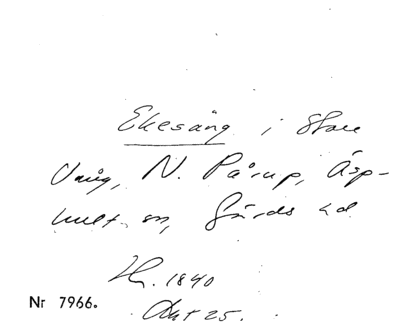 Ekesäng i Stora
Vång, N. Pårup, Äsp-
hult sn, Gärds hd
1840
Nr 7966.
Akt 25.